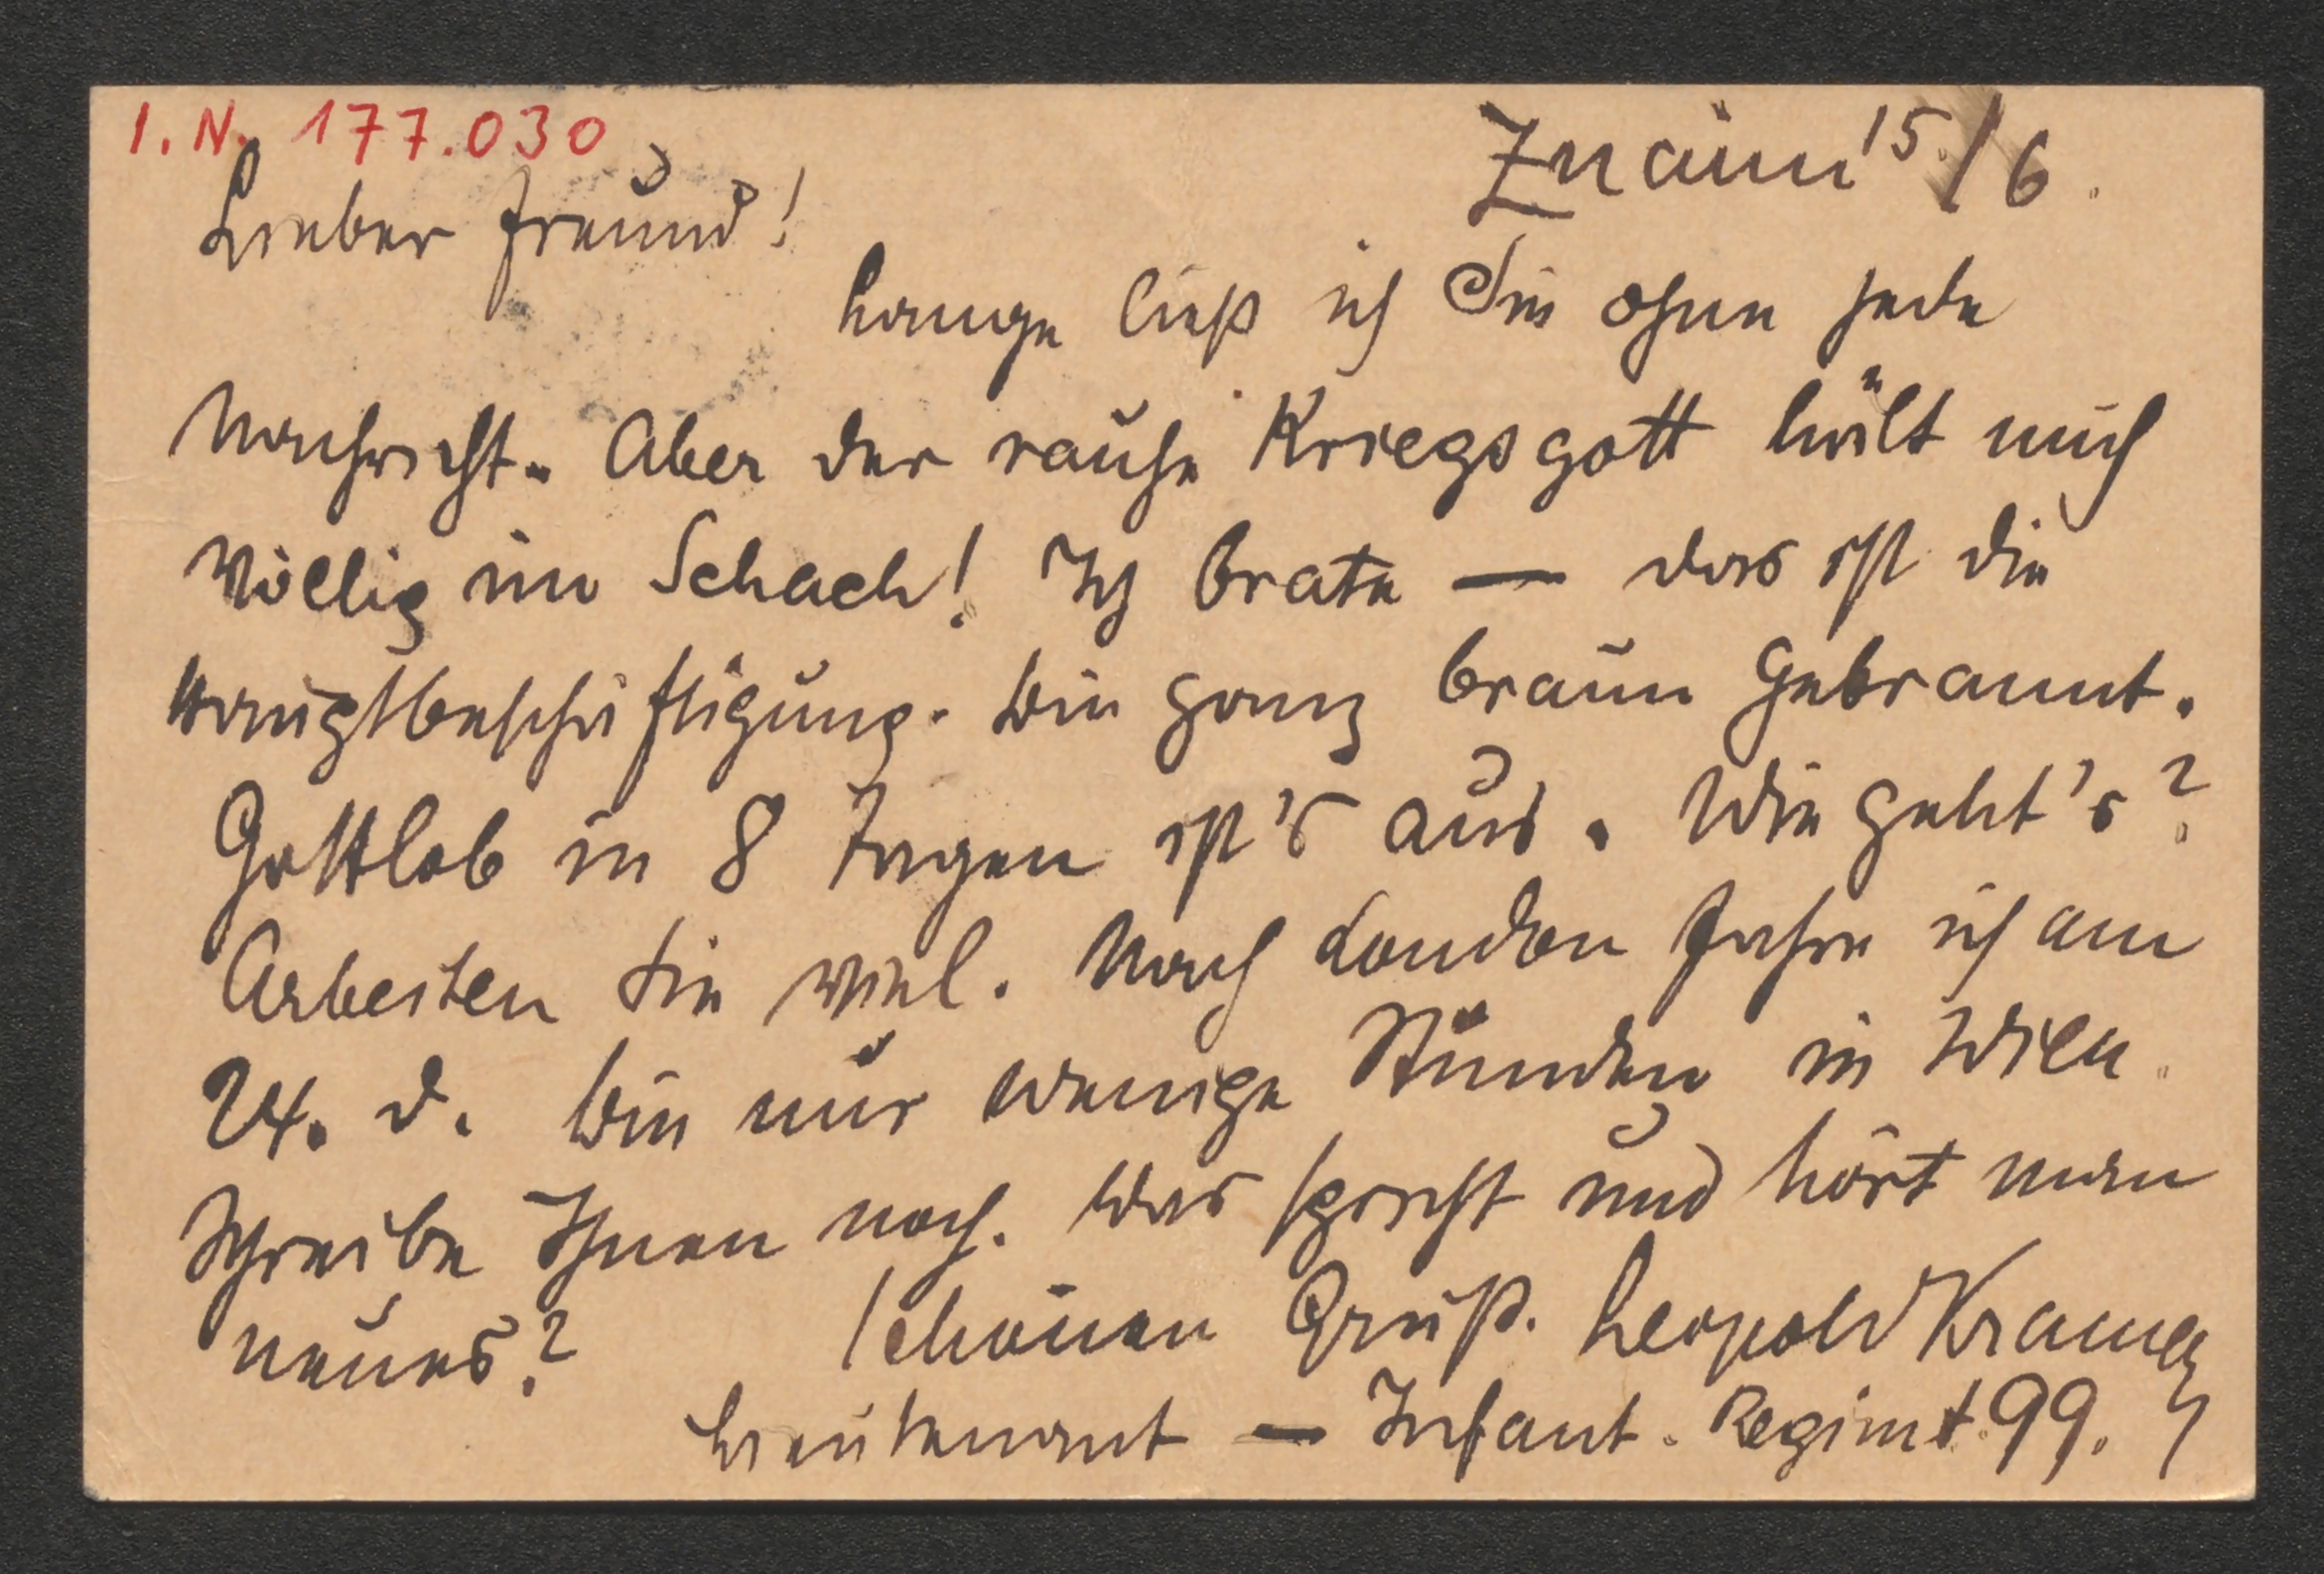 I. N. 177.030
Znaim 15./6.
Lieber Freund!
Lange ließ ich Sie ohne jede
Nachricht. Aber der rauhe Kriegsgott hält mich
völlig im Schach! Ich brate — das ist die
Hauptbeschäftigung. Bin ganz braun gebrannt.
Gottlob in 8 Tagen ist's aus. Wie geht's?
Arbeiten Sie viel. Nach London fahre ich am
24. d. Bin nur wenige Stunden in Wien.
Schreibe Ihnen noch. Was spricht und hört man
neues? Schönen Gruß. Leopold Kramer
Lieutenant — Infant. Regimt. 99.